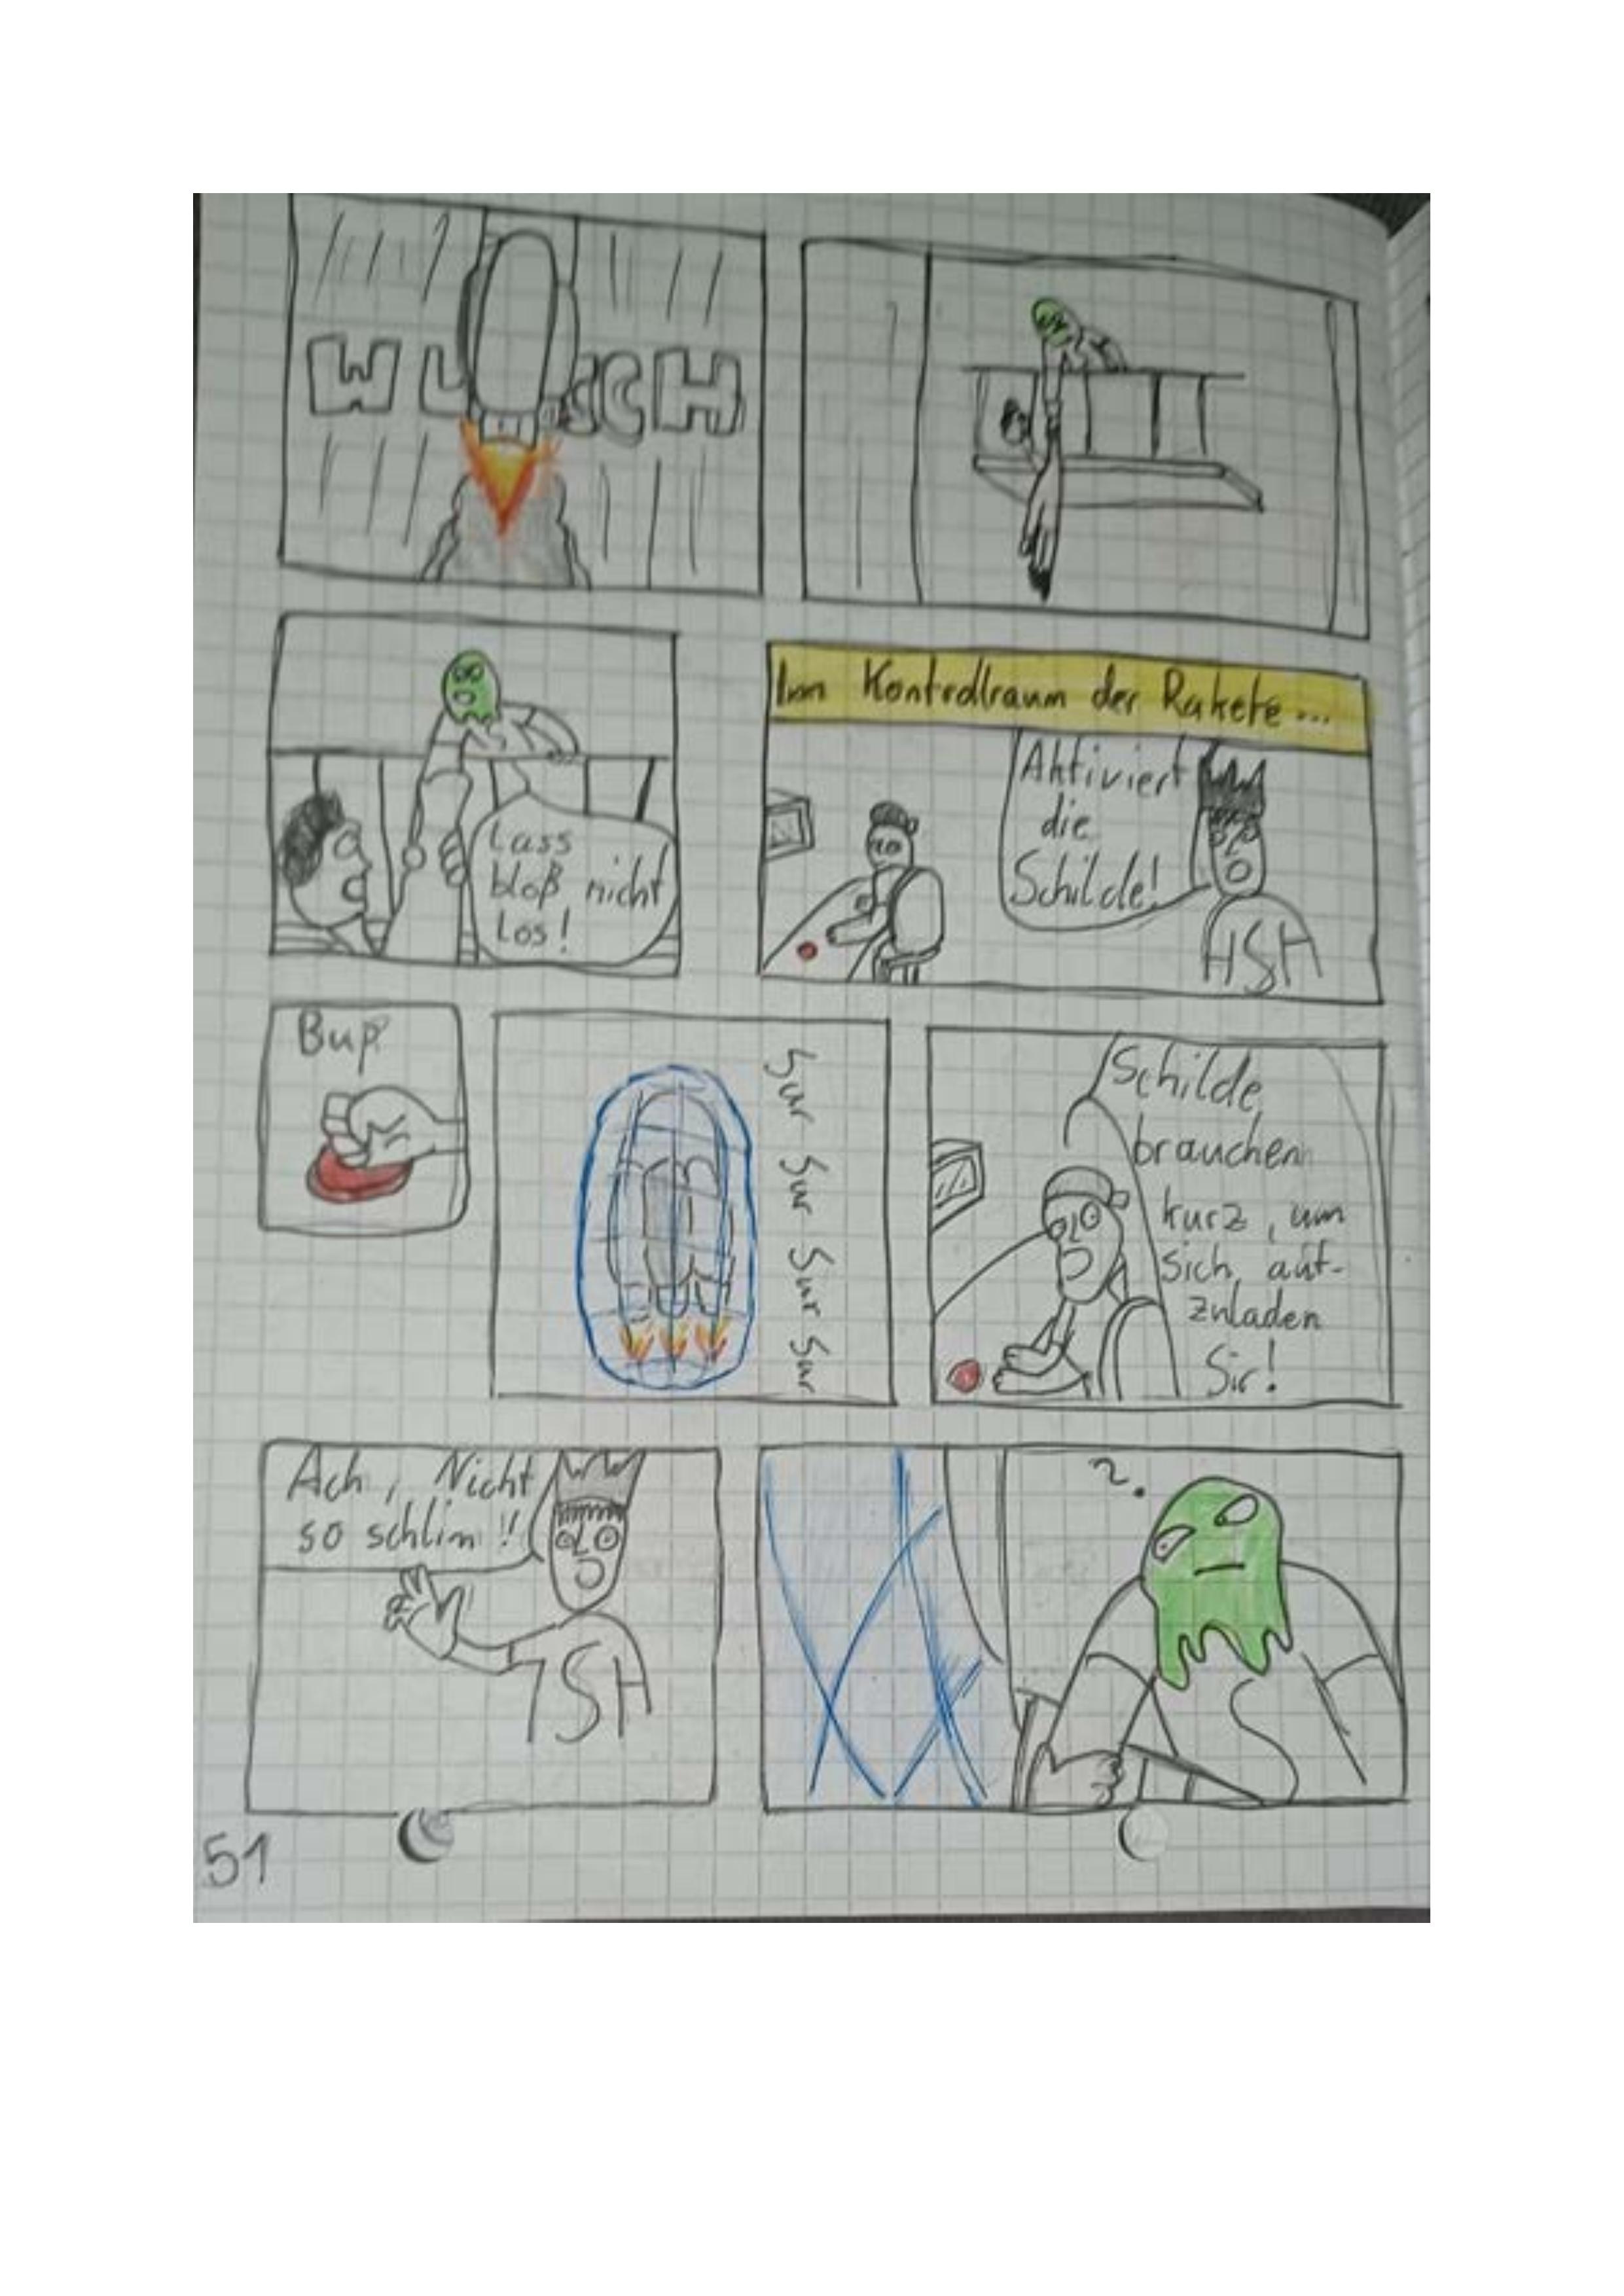 WUSCH
Lass
bloß nicht
Los!
Im Kontrollraum der Rakete...
Aktiviert
die
Schilde!
HSH
Bup
Sur Sur Sur Sur
Schilde
brauchen
kurz, um
sich, auf-
zuladen
Sir!
Ach, Nicht
so schlim!!
HSH
?
S
51